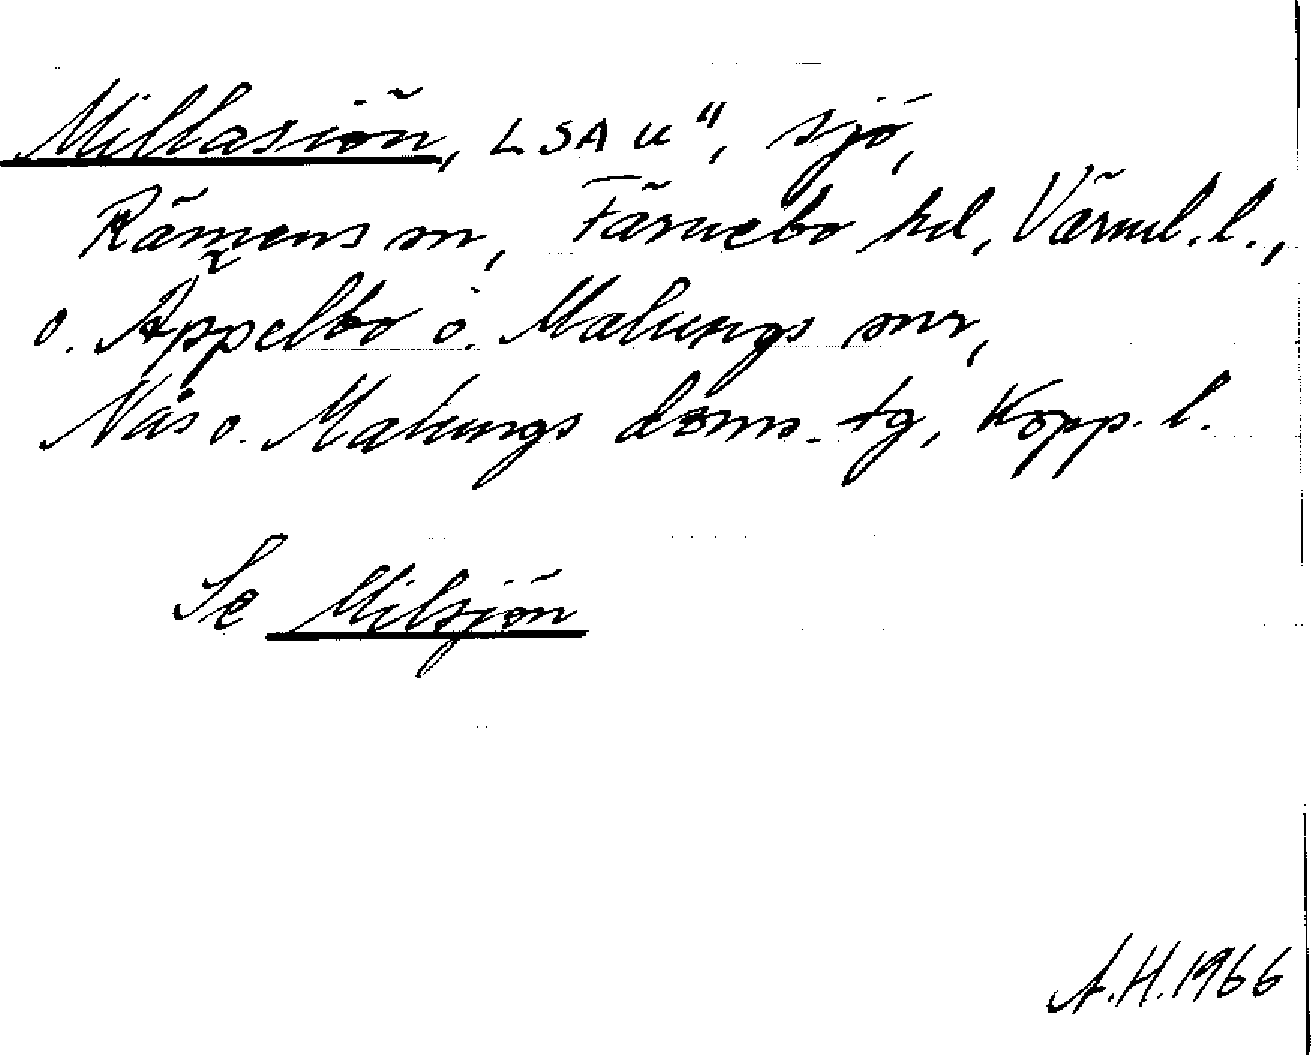 Millasiön, LSA u", sjö,
Rämens sn, Färnebo hd, Värml. l.,
o. Äppelbo o. Malungs snr,
Nås o. Malungs doms. tg, Kopp. l.
Se Milsjön
A.H. 1966